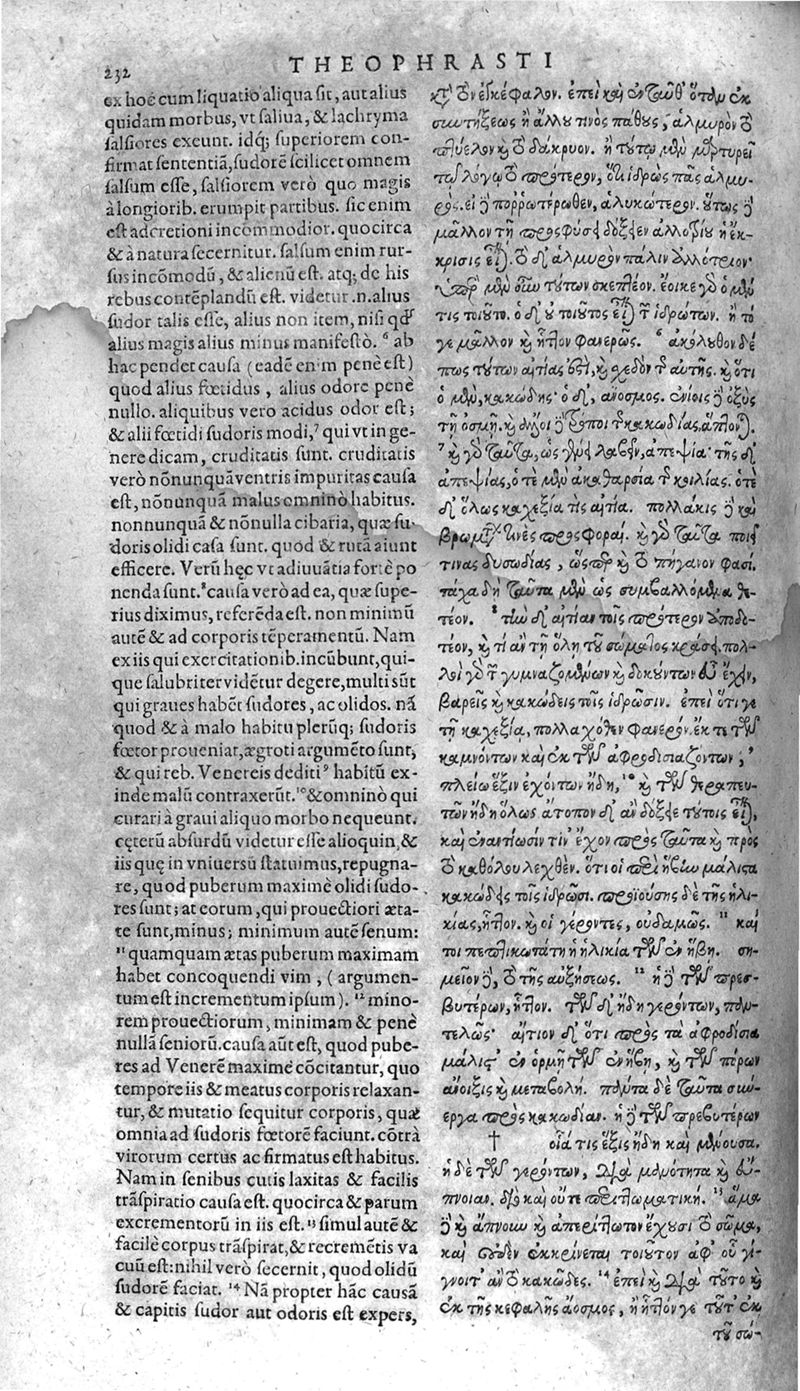 232
THEOPHRASTI
ex hoc cum liquatio aliqua sit, aut alius
quidam morbus, vt saliua, & lachryma
salsiores exeunt. idq; superiorem con-
firmat sententiã, sudorẽ scilicet omnem
salsum esse, salsiorem verò quo magis
à longiorib. erumpit partibus. sic enim
est ad cretioni incommodior. quocirca
& à natura secernitur. salsum enim rur-
sus incõmodũ, & alienũ est. atq; de his
rebus contẽplandũ est. videtur .n. alius
sudor talis esse, alius non item, nisi qđ
alius magis alius minus manifestò. ⁶ ab
hac pendet causa (eadẽ enim penè est)
quod alius fœtidus, alius odore penè
nullo. aliquibus vero acidus odor est;
& alii fœtidi sudoris modi,⁷ qui vt in ge-
nere dicam, cruditatis sunt. cruditatis
verò nonnunquã ventris impuritas causa
est, nõnunquã malus omninò habitus.
nonnunquã & nõnulla cibaria, quæ su-
doris olidi casa sunt. quod & rutã aiunt
efficere. Verũ hęc vt adiuuãtia fortè po
nenda sunt.⁸ causa verò ad ea, quæ supe-
rius diximus, referẽda est. non minimũ
autẽ & ad corporis tẽperamentũ. Nam
ex iis qui exercitationib. incũbunt, qui-
que salubriter vidẽtur degere, multi sũt
qui graues habẽt sudores, ac olidos. nã
quod & à malo habitu plerũq; sudoris
fœtor proueniat, ægroti argumẽto sunt,
& qui reb. Venereis dediti⁹ habitũ ex-
inde malũ contraxerũt.¹⁰ & omninò qui
curari à graui aliquo morbo nequeunt.
cęterũ absurdũ videtur esse alioquin, &
iis quę in vniuersũ statuimus, repugna-
re, quod puberum maximè olidi sudo-
res sunt; at eorum, qui prouectiori æta-
te sunt, minus; minimum autẽ senum:
¹¹ quamquam ætas puberum maximam
habet concoquendi vim, (argumen-
tum est incrementum ipsum). ¹² mino-
rem prouectiorum, minimam & penè
nullã seniorũ. causa aũt est, quod pube-
res ad Venerẽ maximè cõcitantur, quo
tempore iis & meatus corporis relaxan-
tur, & mutatio sequitur corporis, quæ
omnia ad sudoris fœtorẽ faciunt. cõtrà
virorum certus ac firmatus est habitus.
Nam in senibus cutis laxitas & facilis
trãspiratio causa est. quocirca & parum
excrementorũ in iis est. ¹³ simul autẽ &
facilè corpus trãspirat, & recremẽtis va
cuũ est: nihil verò secernit, quod olidũ
sudorẽ faciat. ¹⁴ Nã propter hãc causã
& capitis sudor aut odoris est expers,
καὶ τὸν ἐγκέφαλον. ἐπεὶ καὶ ἐνταῦθ' ὅταν ἐκ
συντήξεως ἢ ἄλλου τινὸς πάθους, ἁλμυρὸν τὸ
πτύελον καὶ τὸ δάκρυον. ἢ τούτῳ μὲν μαρτυρεῖ
τῷ λόγῳ τὸ πρότερον, ὅτι ἱδρὼς πᾶς ἁλμυ-
ρός. εἰ δὲ πορρωτέρωθεν, ἁλυκώτερον. οὕτως δὲ
μᾶλλον τῇ προσφύσει δόξειεν ἀλλοτρίου ἡ ἔκ-
κρισις εἶναι. τὸ δ' ἁλμυρὸν πάλιν ἀλλότριον.
ὑπὲρ μὲν οὖν τούτων σκεπτέον. ἔοικε γὰρ ὁ μέν
τις τοιοῦτο. ὁ δ' οὐ τοιοῦτος εἶναι τῶν ἱδρώτων. ἢ τό
γε μᾶλλον καὶ ἧττον φανερῶς. ⁶ ἀκόλουθον δέ
πως τούτων αἰτίας ἐστὶ, καὶ σχεδὸν τῆς αὐτῆς. καὶ ὅτι
ὁ μὲν, κακώδης· ὁ δ', ἄνοσμος. ἐνίοις δὲ ὀξὺς
τῇ ὀσμῇ. καὶ ἄλλοι δὲ τρόποι τῆς κακωδίας,
⁷ καὶ γὰρ ταῦτα, ὡς γένει λαβεῖν, ἀπεψία· τῆς δ'
ἀπεψίας, ὁτὲ μὲν ἀκαθαρσία τῆς κοιλίας. ὁτὲ
δ' ὅλως καχεξία τὶς αἰτία. πολλάκις δὲ καὶ
βρωμάτων τινὲς προσφοραί. καὶ γὰρ ταῦτα ποιεῖ
τινας δυσωδίας, ὥσπερ καὶ τὸ πήγανον φασί.
τάχα δὴ ταῦτα μὲν ὡς συμβαλλόμενα θε-
τέον. ⁸ τὴν δ' αἰτίαν τοῖς πρότερον ἀποδο-
τέον, καὶ τὶ ἂν τῇ ὅλῃ τοῦ σώματος κράσει. πολ-
λοὶ γὰρ τῶν γυμναζομένων καὶ δοκούντων εὖ ἔχειν,
βαρεῖς καὶ κακώδεις τοῖς ἱδρῶσιν. ἐπεὶ ὅτι γε
τῇ καχεξίᾳ, πολλαχόθεν φανερόν. ἔκ τε τῶν
καμνόντων καὶ ἐκ τῶν ἀφροδισιαζόντων, ⁹
πλείω ἕξιν ἐχόντων ἤδη, ¹⁰ καὶ τῶν θεραπευ-
τῶν ἤδη ὅλως ἄτοπον δ' ἂν δόξειε τούτοις εἶναι,
καὶ ἐναντίωσίν τιν' ἔχον πρὸς ταῦτα καὶ πρὸς
τὸ καθόλου λεχθέν. ὅτι οἱ περὶ ἥβην μάλιστα
κακώδεις τοῖς ἱδρῶσι. προϊούσης δὲ τῆς ἡλι-
κίας, ἧττον. καὶ οἱ γέροντες, οὐδαμῶς. ¹¹ καί
τοι πεπτικωτάτη ἡ ἡλικία τῶν ἐν ἥβῃ. ση-
μεῖον δὲ, τὸ τῆς αὐξήσεως. ¹² ἡ δὲ τῶν πρεσ-
βυτέρων, ἧττον. τῶν δ' ἤδη γερόντων, παν-
τελῶς· αἴτιον δ' ὅτι πρὸς τὰ ἀφροδίσια
μάλιστ' ἐν ὁρμῇ τῶν ἐν ἥβῃ, καὶ τῶν πόρων
ἄνοιξις καὶ μεταβολή. πάντα δὲ ταῦτα συν-
εργὰ πρὸς κακωδίαν. ἡ δὲ τῶν πρεσβυτέρων
† οἷά τις ἕξις ἤδη καὶ μένουσα.
ἡ δὲ τῶν γερόντων, διὰ μανότητα καὶ εὔ-
πνοιαν. διὸ καὶ οὔτε περιττωματική. ¹³ ἅμα
δὲ καὶ ἄπνουν καὶ ἀπερίττωτον ἔχουσι τὸ σῶμα,
καὶ οὐδὲν ἐκκρίνεται τοιοῦτον ἀφ' οὗ γέ-
νοιτ' ἂν τὸ κακῶδες. ¹⁴ ἐπεὶ καὶ διὰ τοῦτο καὶ
ἐκ τῆς κεφαλῆς ἄοσμος, ἢ ἧττόν γε τοῦτ' ἐκ
τοῦ σώ-